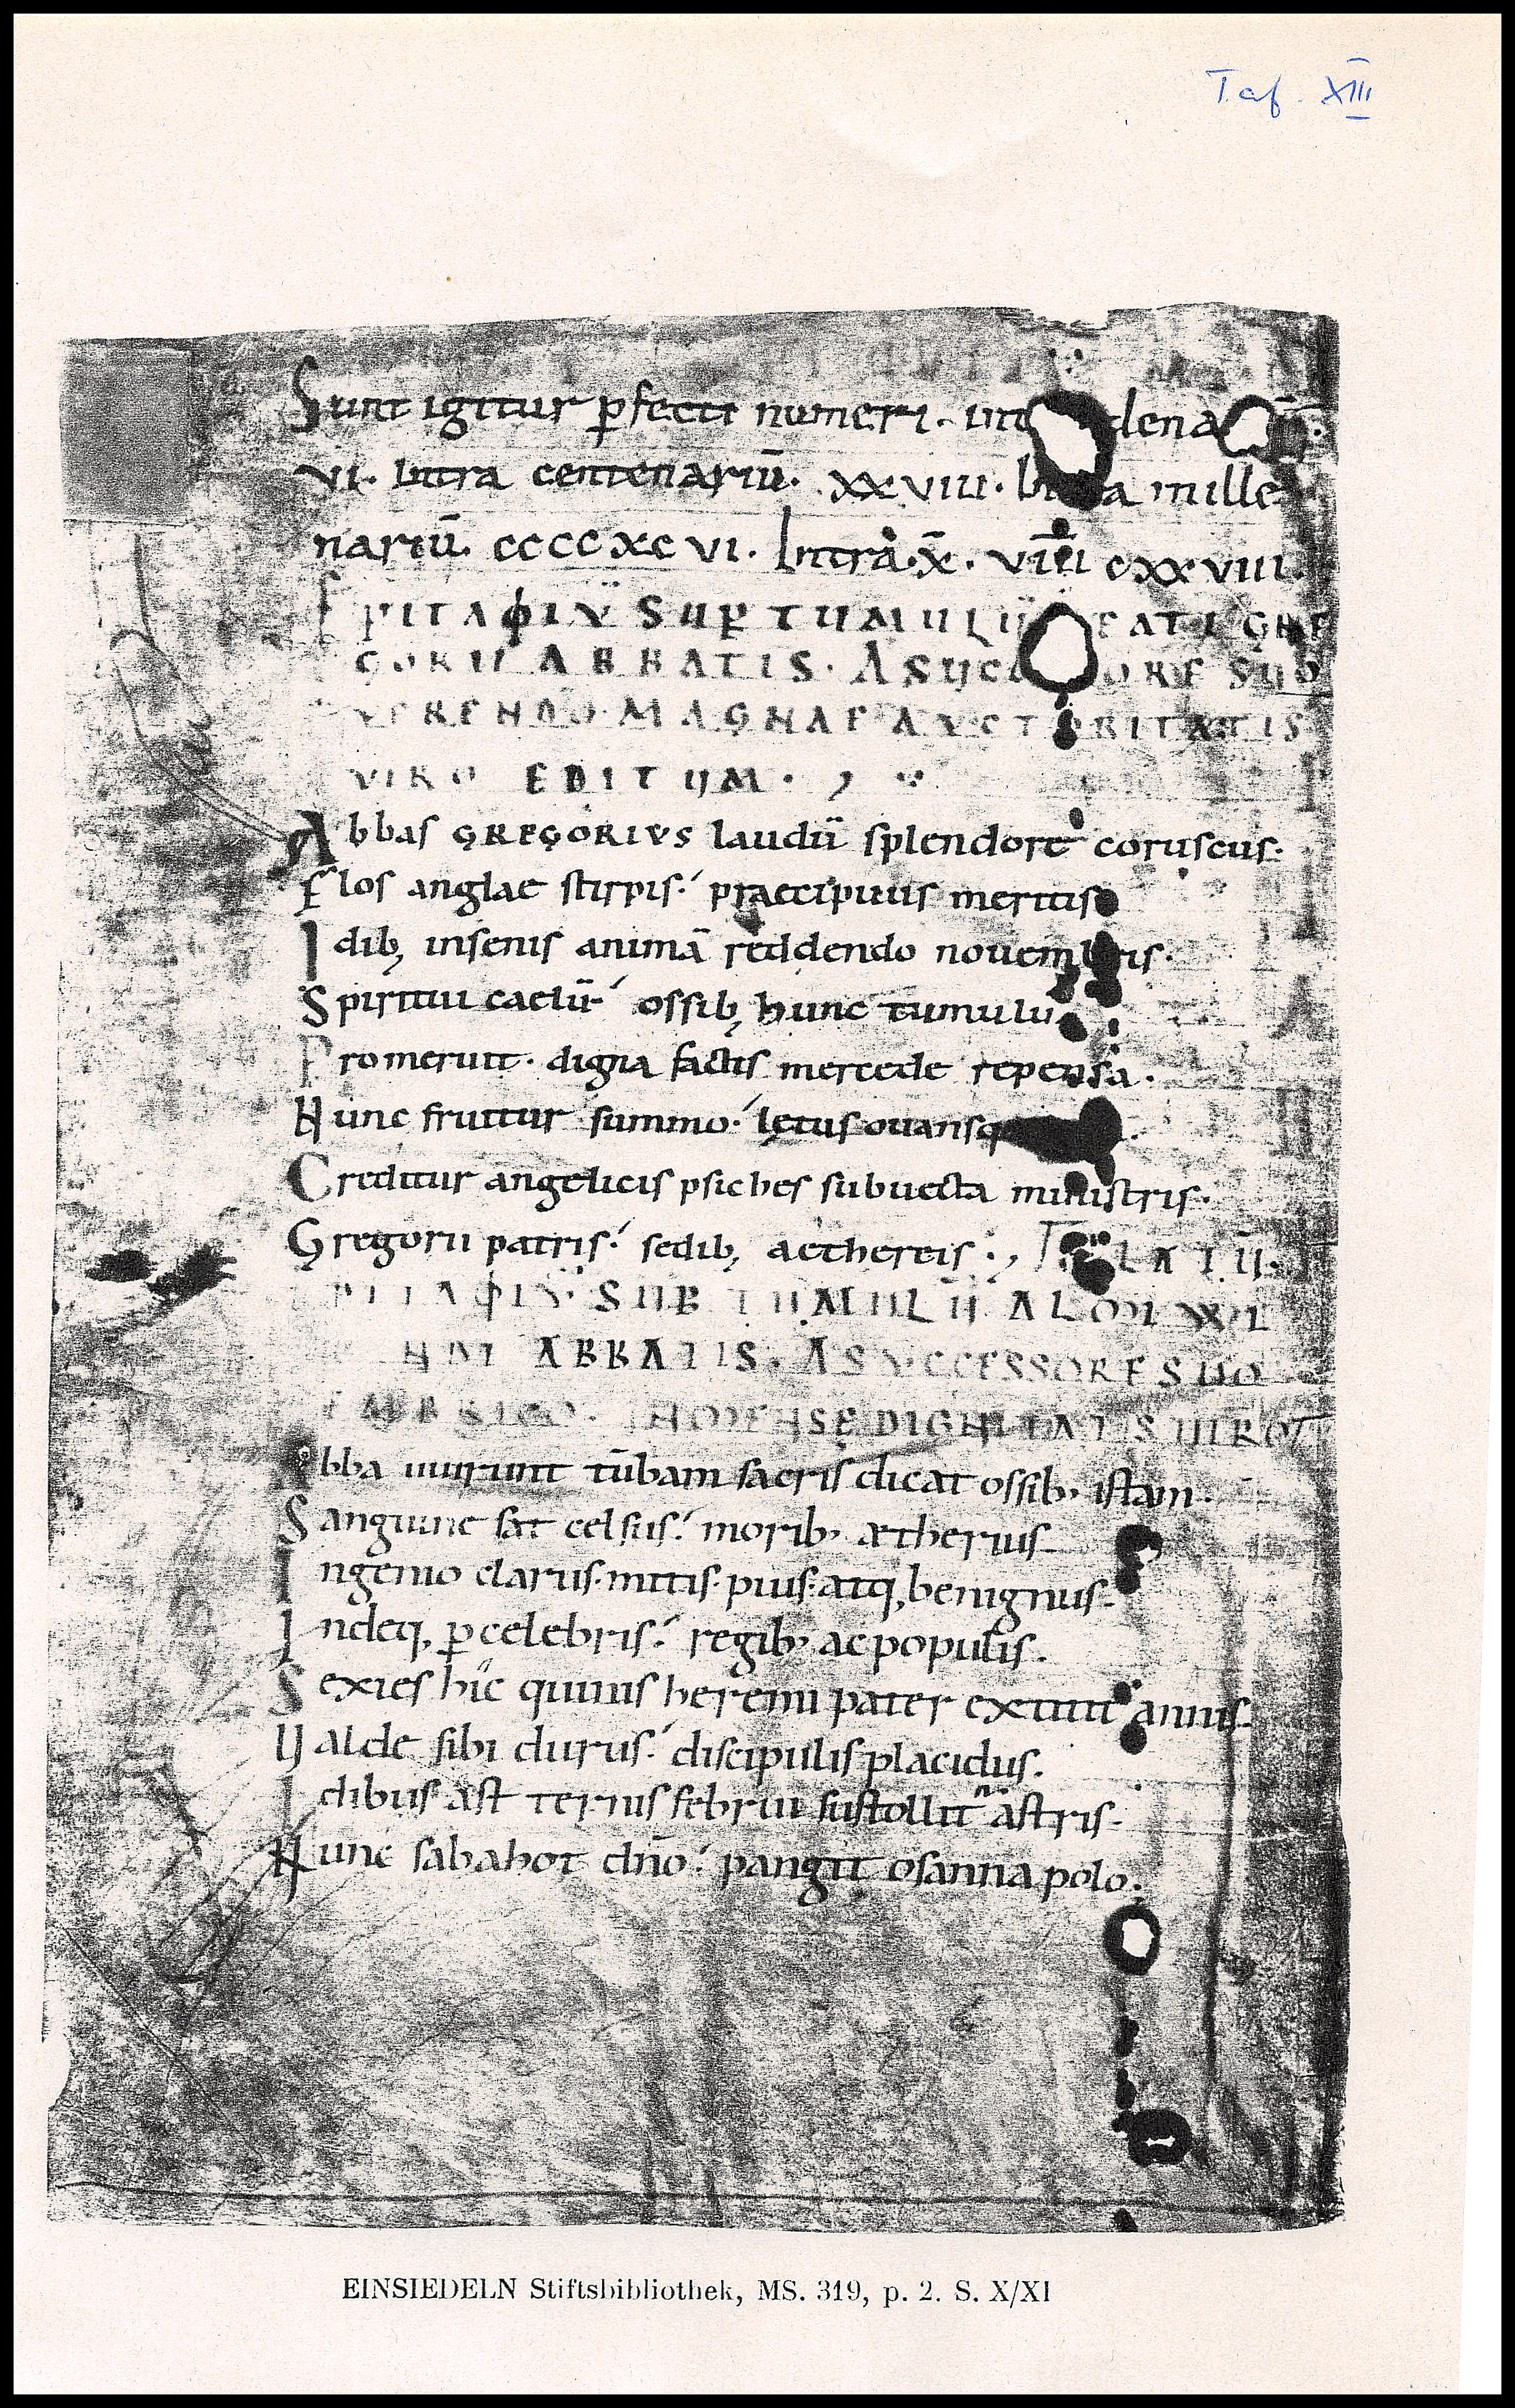 Taf. XIII
Sunt igitur ꝑfecti numeri. int dena
vi. Intra centenariū. xxviii. Intra mille
nariū. ccccxcvi. Intra .x̄. viii cxxviii.
EPITAϕIŪ SUP TUMULŪ BEATI GRE
GORII ABBATIS. A SUCC ORE SUO
VERENDO MAGNAE AVCTORITATIS
VIRO EDITUM.
Abbas GREGORIVS laudū splendore coruscus.
Flos anglae stirpis. praecipuus meritis
Idib; insenis animā reddendo novembris.
Spiritui caelū ossib; hunc tumulu
Promeruit. digna factis mercede repensa.
Nunc fruitur summo. lętus ovansq
Creditur angelicis psiches subvecta ministris.
Gregorii patris. sedib; aethereis:,
PITAϕIŪ SUB TUMULŪ ALOM WI
NDI ABBATIS. A SVCCESSORE SUO
HONESTE DIGNITATIS UIRO
Abba uuirunt tūbam sacris dicat ossib; istam.
Sanguine sat celsus. morib; ætherius.
Ingenio clarus. mitis. pius. atq; benignus.
Indeq; ꝑcelebris. regib; ac populis.
Sexies hic quinis heremi pater extitit annis.
Ualde sibi durus. discipulis placidus.
Idibus ast ternis februi sustollit astris.
Nunc sabahot dn̄o. pangit osanna polo.
EINSIEDELN Stiftsbibliothek, MS. 319, p. 2. S. X/XI